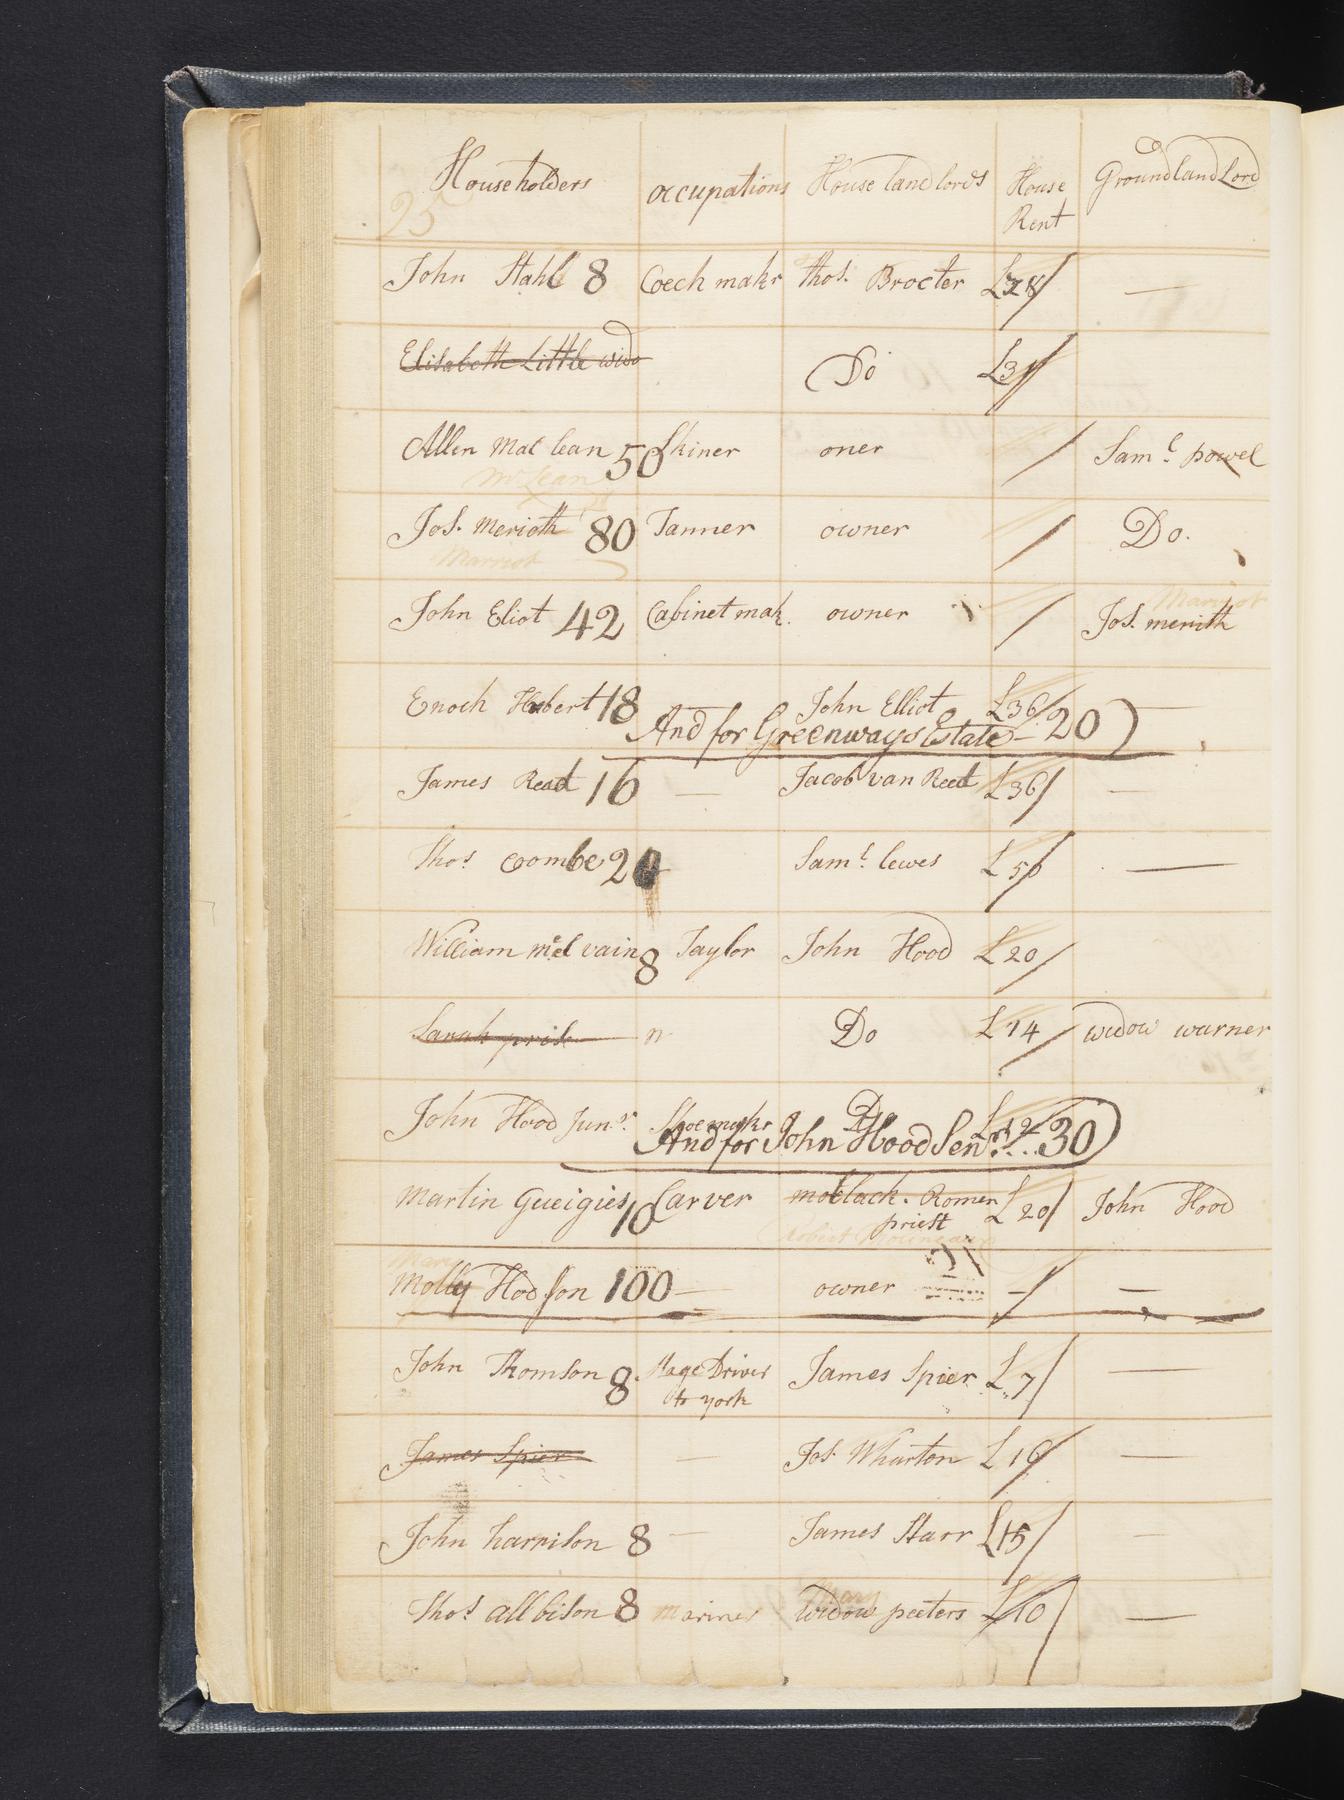 Householders occupations House landlords House Rent Ground land Lord
25
John Stahl 8 Coech makr Thos. Brocter £28/ —
Elisabeth Little wido Do £31/
Allen Mac lean 50 Skiner oner / Saml. powel
McLean
Jos. Merioth 80 Tanner owner / Do.
Marriot
Marriot
John Eliot 42 Cabinet mak. owner / Jos. merith
Enoch Hobert 18 — John Elliot £36/ —
And for Greenways Estate — 20)
James Read 16 — Jacob van Reed £36/ —
Thos coombe 20 Saml. lewes £50/ —
William mcel vain 8 Taylor John Hood £20/
Sarah Do £14/ widow warner
John Hood Junr. Shoemakr Do £12
And for John Hood Senr. .. 30)
Martin Gueigies 10 Carver Romen £20/ John Hood
priest
Robert
Mary
Molly Hodson 100 — owner —/ —
John Thomson 8 Stage Driver to york James Spier £7/ —
James Spier — Jos Wharton £16/ —
John harrison 8 — James Starr £15/ —
Mary
Thos allbison 8 mariner widow peeters £10/ —